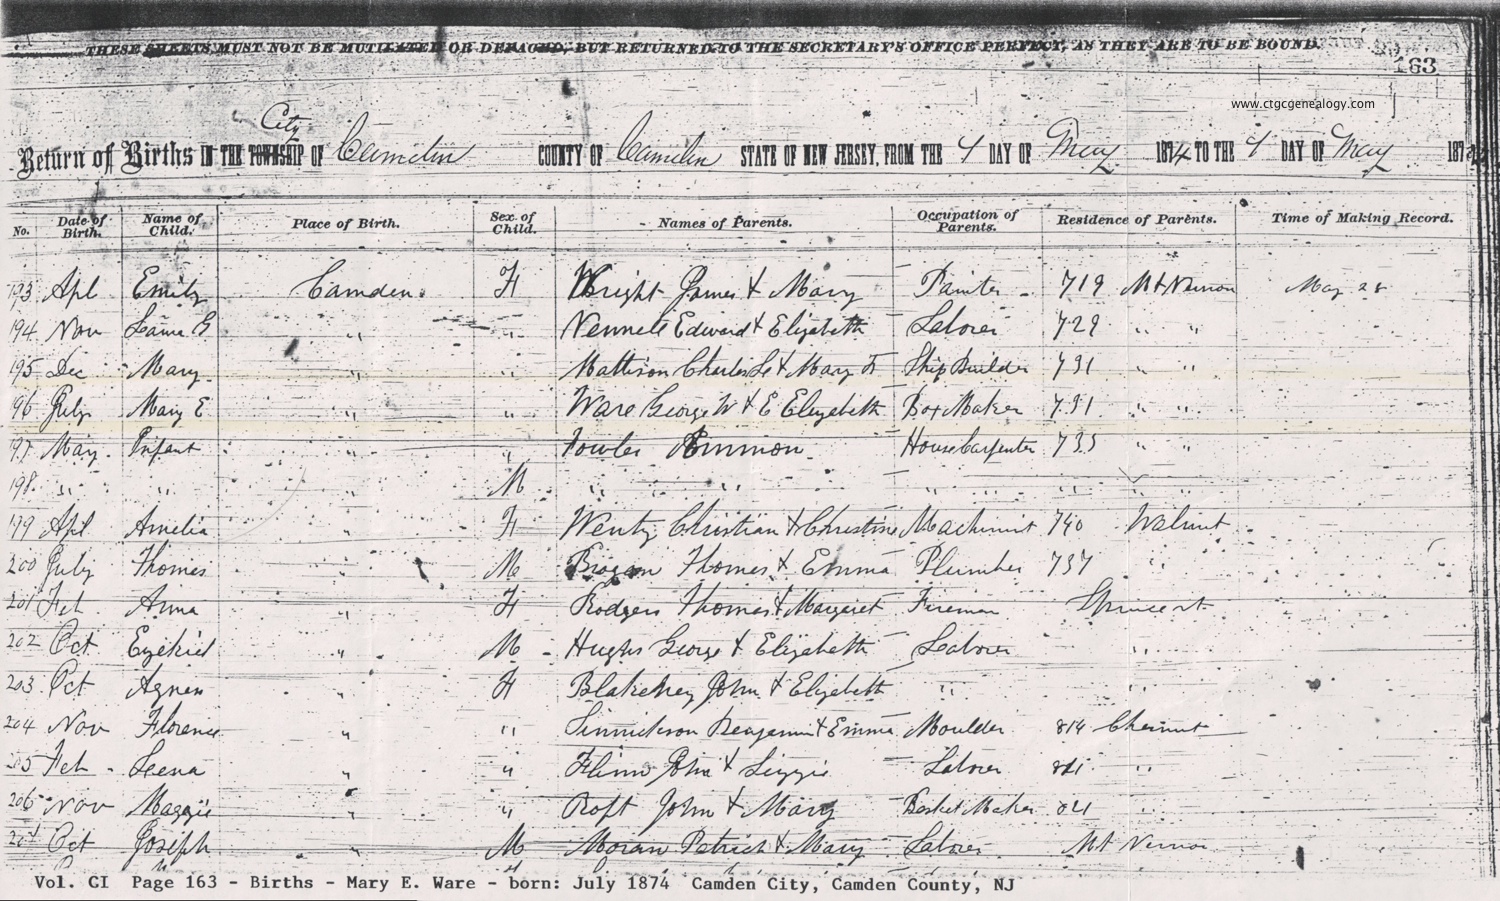 THESE SHEETS MUST NOT BE MUTILATED OR DEFACED, BUT RETURNED TO THE SECRETARY'S OFFICE PERFECT, AS THEY ARE TO BE BOUND.
163
www.ctgcgenealogy.com
City
Return of Births IN THE TOWNSHIP OF Camden COUNTY OF Camden STATE OF NEW JERSEY, FROM THE 1 DAY OF May 1874 TO THE 1 DAY OF May 187
No. Date of Birth. Name of Child. Place of Birth. Sex of Child. Names of Parents. Occupation of Parents. Residence of Parents. Time of Making Record.
193 Apl Emily Camden. F Wright James & Mary Painter 719 Mt Vernon May 28
194 Nov Laura G " " Edward & Elizabeth Laborer 729 " "
195 Dec Mary " " Mattison Charles & Mary F Ship Builder 731 " "
96 July Mary E " " Ware George W & E Elizabeth Box Maker 731 " "
197 May Infant " " Fowler House Carpenter 733 " "
198 " " " M " " " " "
199 Apl Amelia " F Wentz Christian & Christine Machinist 740 Walnut
200 July Thomas " M Brogan Thomas & Emma Plumber 737 "
201 Feb Anna " F Rodgers Thomas & Margaret Fireman Spruce st
202 Oct Ezekiel " M Hughs George & Elizabeth Laborer "
203 Oct Agnes " F Blakeney John & Elizabeth " "
204 Nov Florence " " Sinnickson Benjamin & Emma Moulder 814 Chesnut
205 Feb Leena " " Flinn John & Lizzie Laborer 821 "
206 Nov Maggie " " Roft John & Mary Basket Maker 821 "
207 Oct Joseph " M Moran Patrick & Mary Laborer Mt Vernon
Vol. CI Page 163 - Births - Mary E. Ware - born: July 1874 Camden City, Camden County, NJ